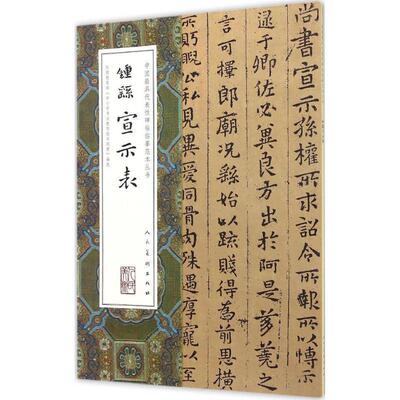 尚書宣示孫權所求詔令所報所以博示
逮于卿佐必冀良方出於阿是芻蕘之
言可擇郎廟況繇始以疏賤得為前恩橫
所盱睨公私見異愛同骨肉殊遇厚寵以至
中國最具代表性碑帖臨摹範本叢書
鍾繇宣示表
人民美術出版社